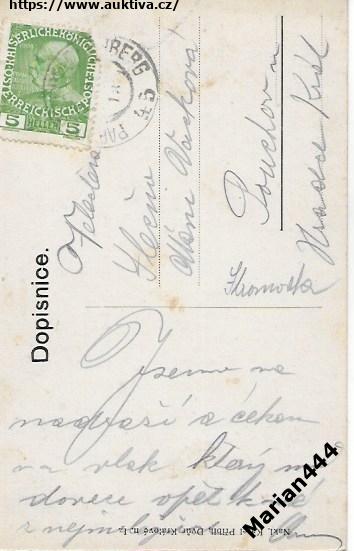 https://www.auktiva.cz/
KAISERLICHEKÖNIGLICHE
ÖSTERREICHISCHE POST
5 HELLER 5
BERG
PAR
Dopisnice.
Velectěná
Slečna
Máni Vacková
Pouchov u
Hradce Král
Stromovka
Jsme na
nádraží a čekám
na vlak který
doveze opět k
z nejmilejších
Nakl. Přibil, Dvůr Králové n. L.
Marian444